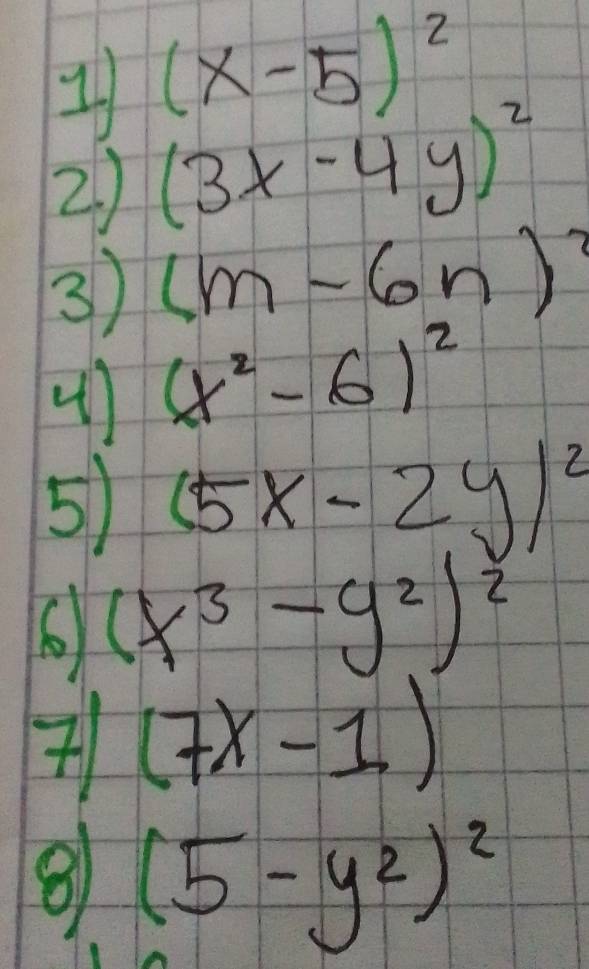 1) (x-5)²
2.) (3x-4y)²
3) (m-6n)²
4) (x²-6)²
5) (5x-2y)²
6) (x³-y²)²
7) (7x-1)
8) (5-y²)²